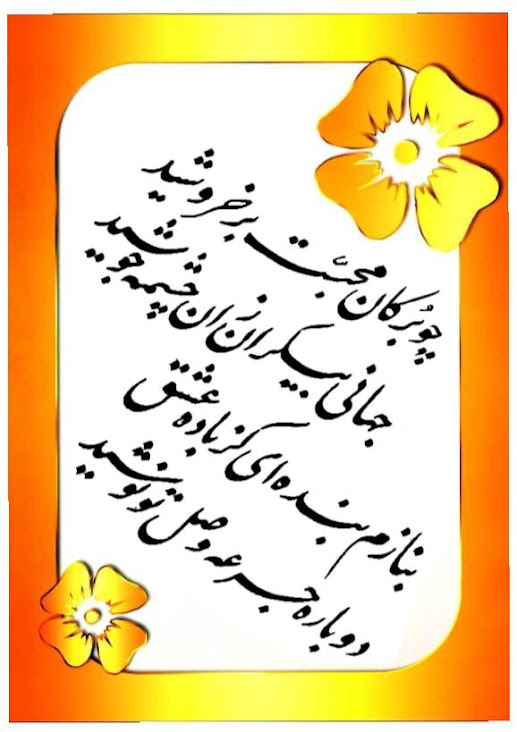 چو بُرکان محبّت بر خروشید
جهانی بیکران زان چشمه جوشید
بنازم بنده ای کز باده عشق
دوباره جرعه وصل تو نوشید